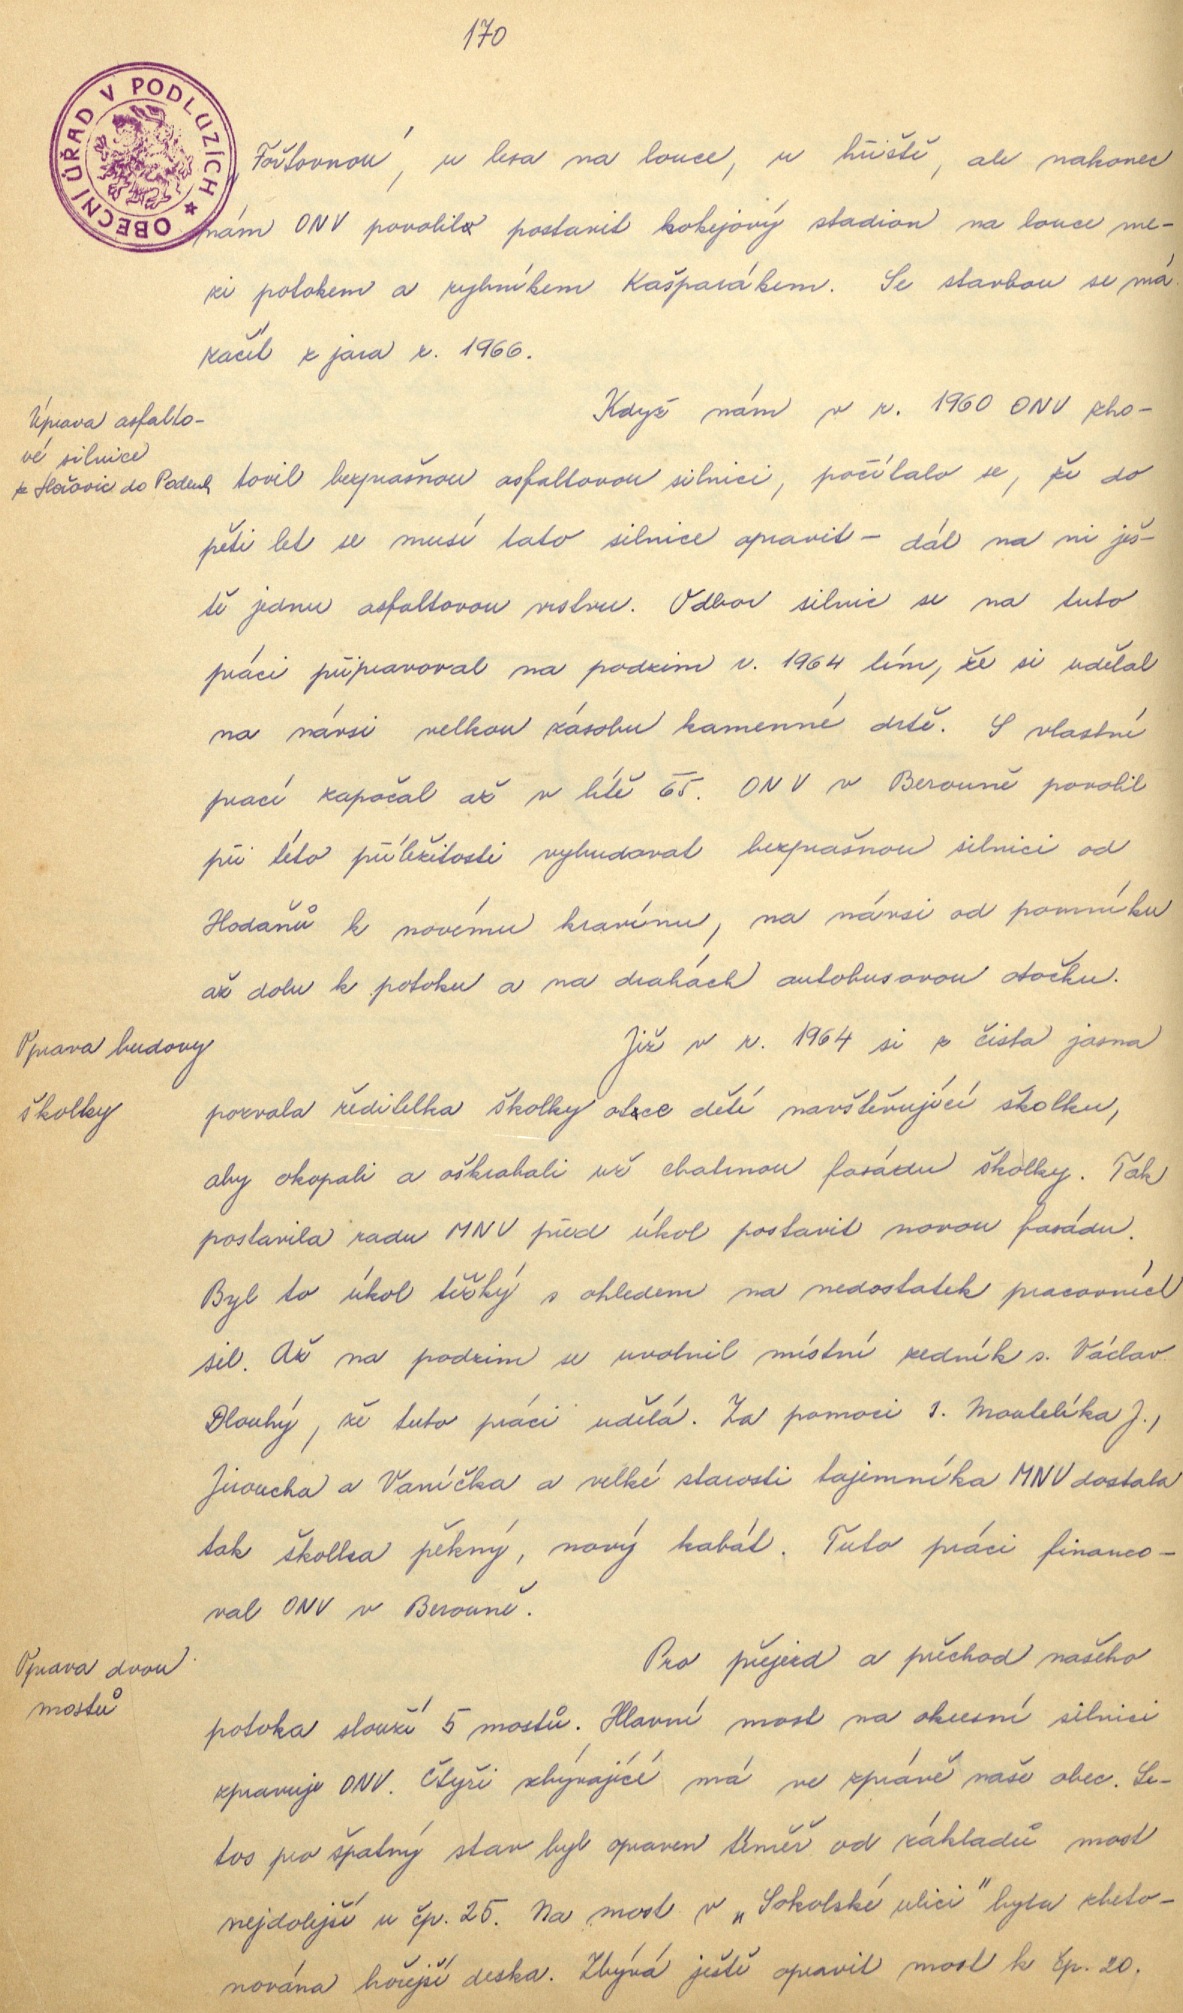 170
OBECNÍ ÚŘAD V PODLUZÍCH
Foštovnou, u lesa na louce, u hřiště, ale nakonec
nám ONV povolila postavit hokejový stadion na louce me-
zi potokem a rybníkem Kašparákem. Se stavbou se má
začít z jara r. 1966.
Úprava asfalto-
vé silnice
z Hořovic do Podluh
Když nám v r. 1960 ONV zho-
tovil bezprašnou asfaltovou silnici, počítalo se, že do
pěti let se musí tato silnice opravit - dát na ni ješ-
tě jednu asfaltovou vrstvu. Odbor silnic se na tuto
práci připravoval na podzim r. 1964 tím, že si udělal
na návsi velkou zásobu kamenné drtě. S vlastní
prací započal až v létě 65. ONV v Berouně povolil
při této příležitosti vybudovat bezprašnou silnici od
Hodaňů k novému kravínu, na návsi od pomníku
až dolu k potoku a na drahách autobusovou otočku.
Oprava budovy
školky
Již v r. 1964 si z čista jasna
pozvala ředitelka školky otce dětí navštěvující školku,
aby okopali a oškrabali už chatrnou fasádu školky. Tak
postavila radu MNV před úkol postavit novou fasádu.
Byl to úkol těžký s ohledem na nedostatek pracovních
sil. Až na podzim se uvolnil místní zedník s. Václav
Dlouhý, že tuto práci udělá. Za pomoci s. Moutelíka J.,
Jiroucha a Vaníčka a velké starosti tajemníka MNV dostala
tak školka pěkný, nový kabát. Tuto práci financo-
val ONV v Berouně.
Oprava dvou
mostů
Pro přejezd a přechod našeho
potoka slouží 5 mostů. Hlavní most na okresní silnici
zpravuje ONV. Čtyři zbývající má ve zprávě naše obec. Le-
tos pro špatný stav byl opraven téměř od základů most
nejdolejší u čp. 25. Na most v „Sokolské ulici" byla zbeto-
nována hořejší deska. Zbývá ještě opravit most k čp. 20.